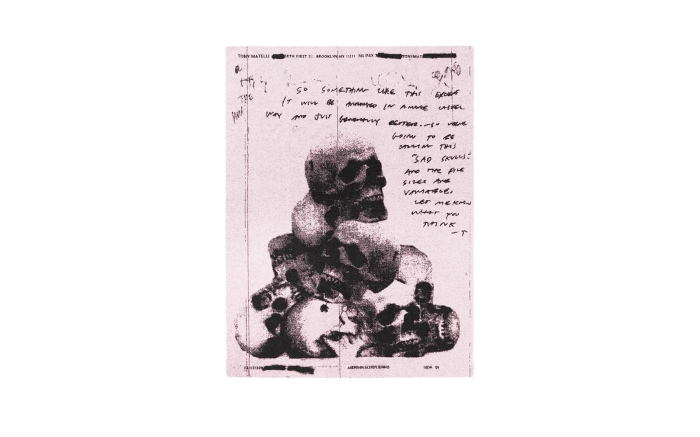 TONY MATELLI NORTH FIRST ST BROOKLYN NY 11211
SO SOMETHING LIKE THIS EXCEPT
IT WILL BE ARRANGED IN A MORE CASUAL
WAY AND JUST GENERALLY BETTER... SO WERE
GOING TO BE
CALLING THIS
"SAD SKULLS."
AND THE PILE
SIZES ARE
VARIABLE.
LET ME KNOW
WHAT YOU
THINK
-T